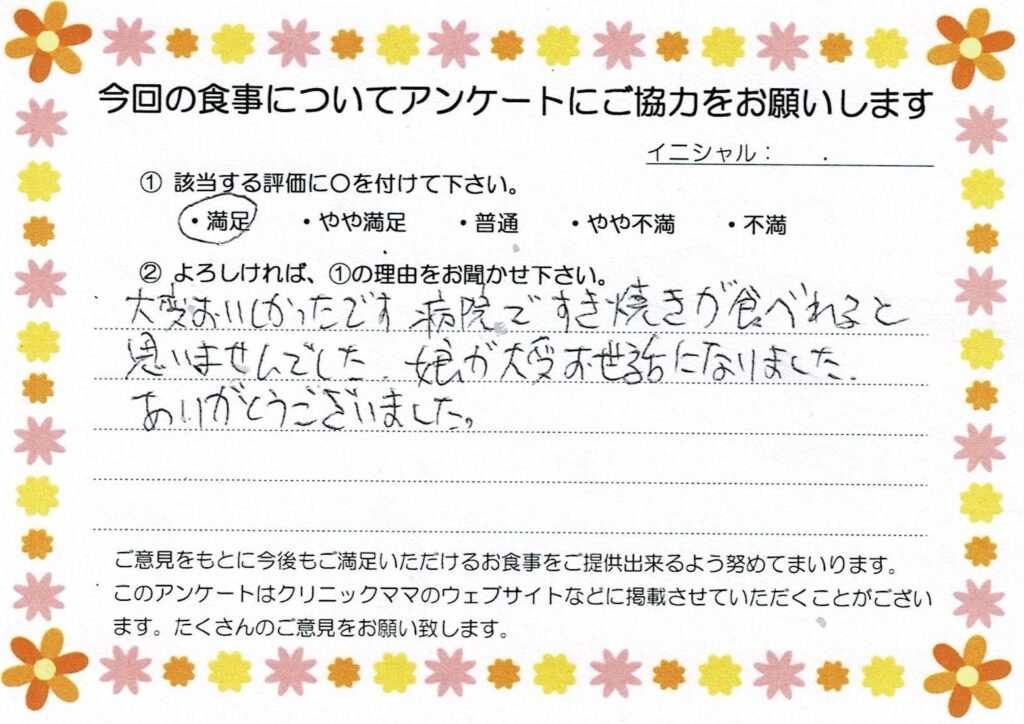 今回の食事についてアンケートにご協力をお願いします
イニシャル： .
① 該当する評価に〇を付けて下さい。
・満足 ・やや満足 ・普通 ・やや不満 ・不満
② よろしければ、①の理由をお聞かせ下さい。
大変おいしかったです 病院ですき焼きが食べれると
思いませんでした. 娘が大変お世話になりました.
ありがとうございました。
ご意見をもとに今後もご満足いただけるお食事をご提供出来るよう努めてまいります。
このアンケートはクリニックママのウェブサイトなどに掲載させていただくことがござい
ます。たくさんのご意見をお願い致します。